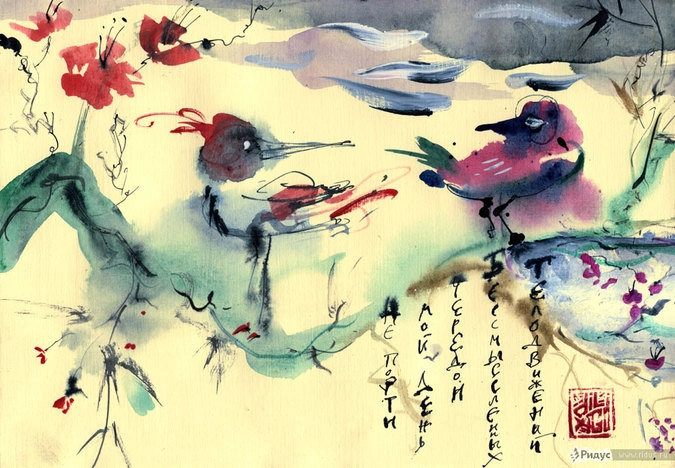 НЕ ПОРТИ
МОЙ ДЕНЬ
ЧЕРЕДОЙ
БЕССМЫСЛЕННЫХ
ТЕЛОДВИЖЕНИЙ
Ридус www.ridus.ru